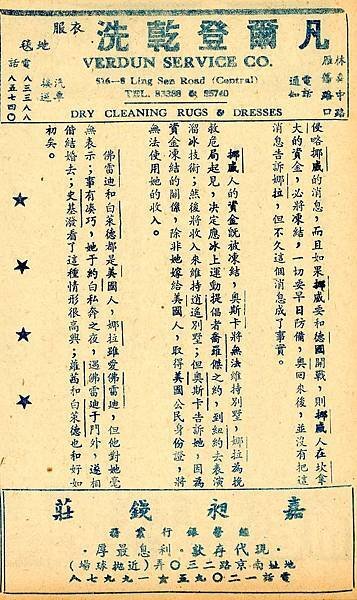 凡爾登乾洗
衣服
地毯
林森中路
雁蕩路口
電話通知
汽車接送
電話
八三三八八
八五七四〇
VERDUN SERVICE CO.
616-8 Ling Sen Road (Central)
TEL. 83388 & 85740
DRY CLEANING RUGS & DRESSES
侵略挪威的消息，而且如果挪威妥和德國開戰，則挪威人在坎拿
大的資金，必將凍結，一切妥早日防備，奧回來後，並沒有把這
消息告訴娜拉，但不久這個消息成了事實。
挪威人的資金旣被凍結，奧斯卡將無法維持別墅，娜拉為挽
救危局起見，決定應冰上運動提倡者喬羅傑之約，到紐約去表演
溜冰技術；然後將收入來維持逍遙別墅；但奧斯卡告訴她，因為
資金凍結的關係，除非她嫁給美國人，取得美國公民身份證，將
無法使用她的收入。
佛雷迪和白萊德都是美國人，娜拉雖愛佛雷迪，但他對她毫
無表示；事有湊巧，她于約白私奔之夜，遇佛雷迪于門外，遂相
偕結婚去；史基潑看了這種情形很高興；蘿茜和白萊德也和好如
初矣。
嘉昶錢莊
經營銀行業務
現代存款．利息最厚
地址南京路二三〇弄(近拋球場)
電話